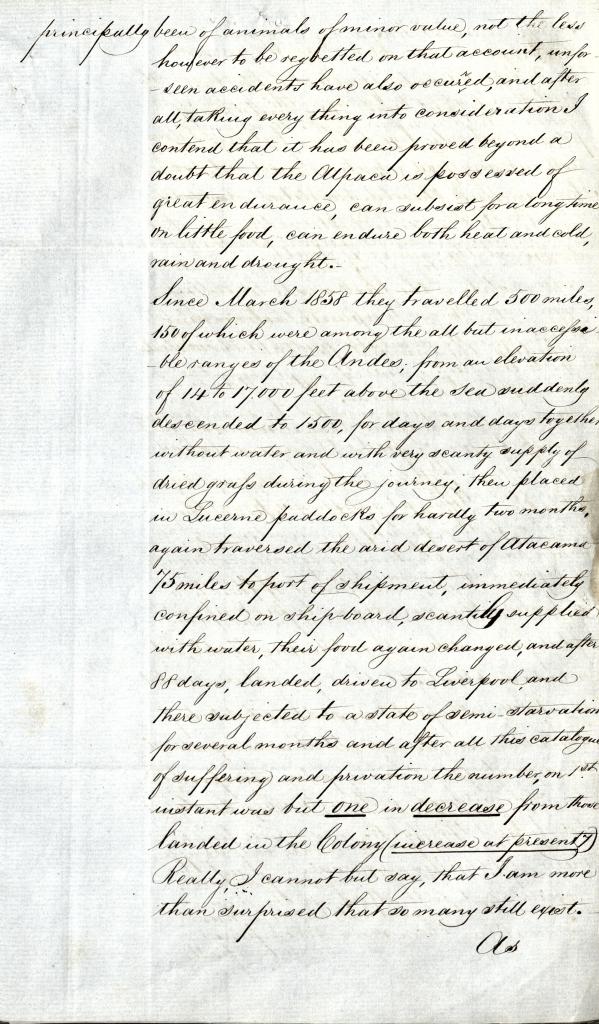 principally been of animals of minor value, not the less
however to be regretted on that account, unfor-
-seen accidents have also occured, and after
all, taking every thing into consideration I
contend that it has been proved beyond a
doubt that the Alpaca is possessed of
great endurance, can subsist for a long time
on little food, can endure both heat and cold,
rain and drought.-
Since March 1858 they travelled 500 miles,
150 of which were among the all but inaccessi-
-ble ranges of the Andes; from an elevation
of 14 to 17,000 feet above the sea suddenly
descended to 1500, for days and days together
without water and with very scanty supply of
dried grass during the journey, then placed
in Lucerne paddocks for hardly two months,
again traversed the arid desert of Atacama
75 miles to port of shipment, immediately
confined on ship-board, scantily supplied
with water, their food again changed, and after
88 days, landed, driven to Liverpool and
there subjected to a state of semi-starvation
for several months and after all this catalogue
of suffering and privation the number, on 1st
instant was but one in decrease from those
landed in the Colony (increase at present 7)
Really, I cannot but say, that I am more
than surprised that so many still exist.
As